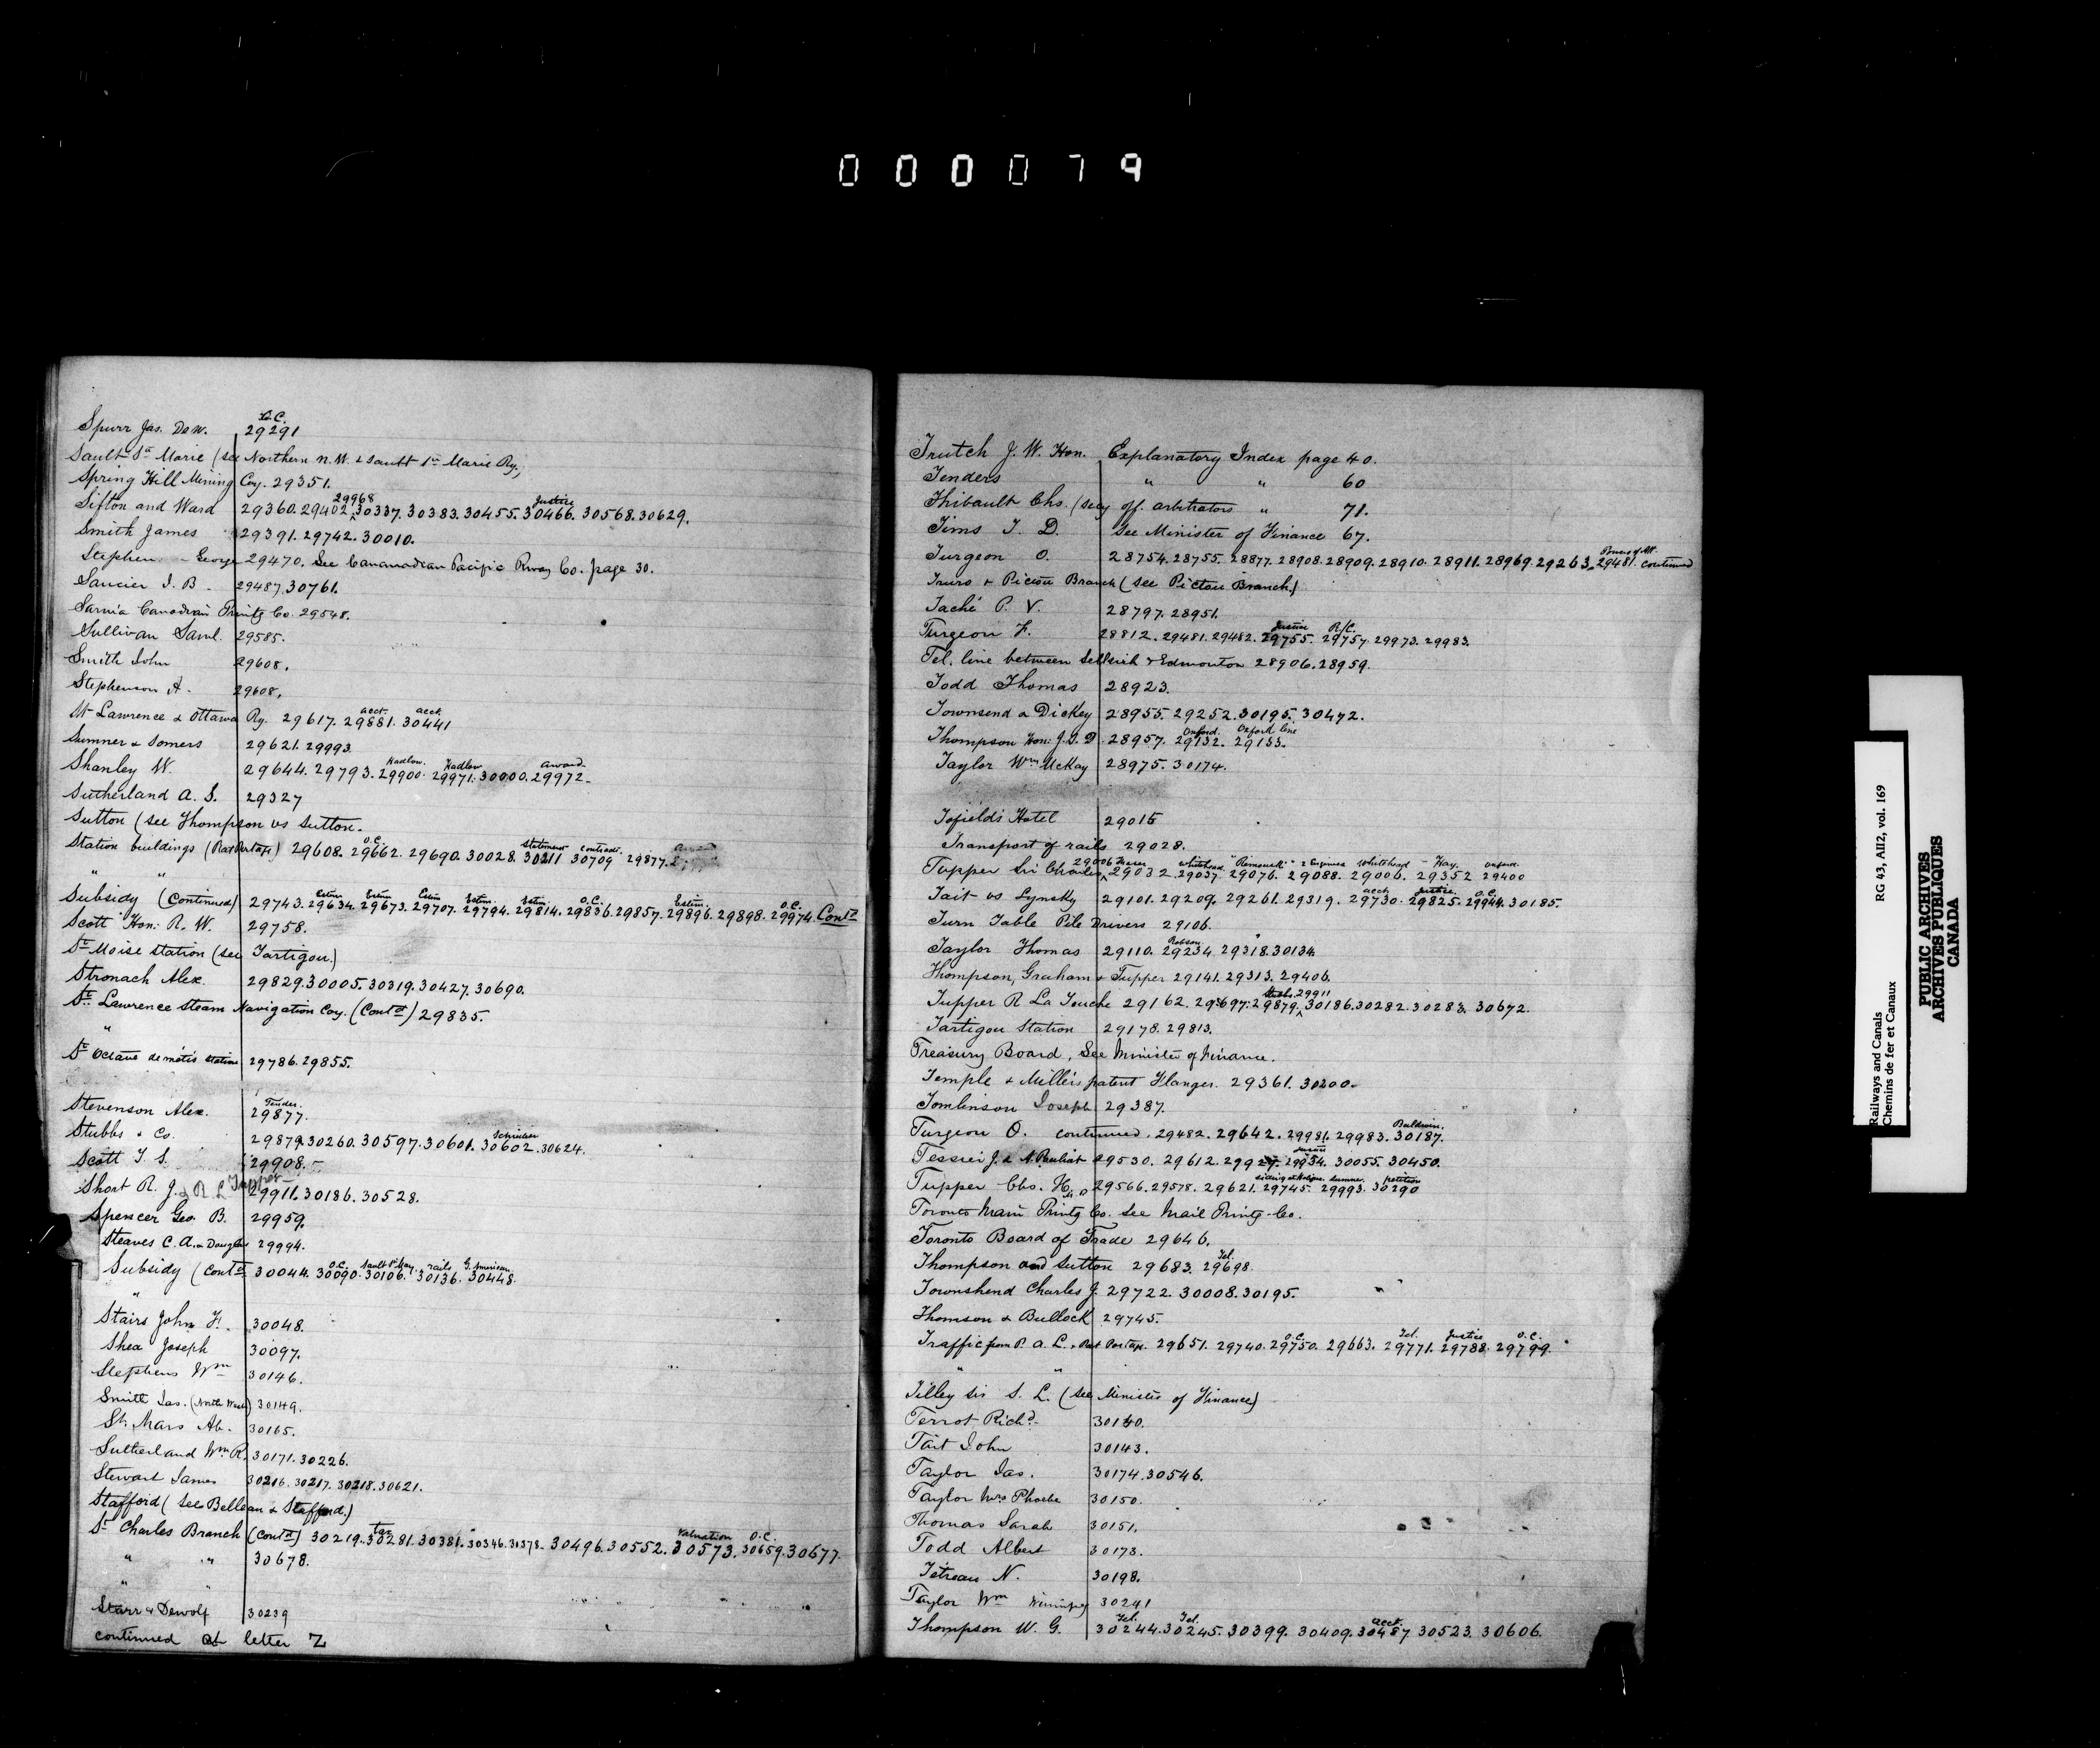 000079
O.C.
Spurr Jas. DeW. 29291
Sault Ste Marie (see Northern N.W. & Sault Ste Marie Ry.)
Spring Hill Mining Coy. 29351.
29968 Justice
Sifton and Ward 29360. 29402. 30337. 30383. 30455. 30466. 30568. 30629.
Smith James 29391. 29742. 30010.
Stephen - George 29470. See Cananadian Pacific Rway Co. page 30.
Saucier J. B. 29487. 30761.
Sarnia Canadian Printg Co. 29548.
Sullivan Saml. 29585.
Smith John 29608.
Stephenson A. 29608.
acct. acct.
St Lawrence & Ottawa Ry. 29617. 29881. 30441
Sumner & Somers 29621. 29993
Hadlow. Hadlow award
Shanley W. 29644. 29793. 29900. 29971. 30000. 29972.
Sutherland A. S. 29327
Sutton (see Thompson vs Sutton.
O.C. Statement contract
Station buildings (Rat Portage) 29608. 29662. 29690. 30028. 30211 30709 29877.
" "
Estim. Estim Estim Estim. Estim. O.C. Estim. O.C.
Subsidy (Continued) 29743. 29634. 29673. 29707. 29794. 29814. 29836. 29857. 29896. 29898. 29974. Contd
Scott Hon. R. W. 29758.
St Moise station (see Tartigou.)
Stronach Alex. 29829. 30005. 30319. 30427. 30690.
St. Lawrence Steam Navigation Coy. (Contd) 29835.
"
St Octave de metis station 29786. 29855.
Tender.
Stevenson Alex. 29877.
Schrieber
Stubbs & Co. 29879. 30260. 30597. 30601. 30602. 30624.
Scott T. S. 29908.
Short R. J. & R. L. Tupper 29911. 30186. 30528.
Spencer Geo. B. 29959.
Steaves C. A. & Douglas 29994.
O.C. Sault St May. rails G. American
Subsidy (Contd 30044. 30090. 30106. 30136. 30448.
"
Stairs John F. 30048.
Shea Joseph 30097.
Stephens Wm 30146.
Smith Jas. (North West) 30149.
St. Mars Ab. 30165.
Sutherland Wm R. 30171. 30226.
Stewart James 30216. 30217. 30218. 30621.
Stafford (see Belleau & Stafford.)
tar Valuation O.C.
St Charles Branch (Contd) 30219. 30281. 30381. 30346. 30378. 30496. 30552. 30573. 30659. 30677.
" " 30678.
" "
Starr & Dewolf 30239
continued at letter Z
Trutch J. W. Hon. Explanatory Index page 40.
Tenders " " 60
Thibault Chs. (secy off. arbitrators " 71.
Tims T. D. See Minister of Finance 67.
Turgeon O. 28754. 28755. 28877. 28908. 28909. 28910. 28911. 28969. 29263. 29481. continued
Truro & Pictou Branch (see Pictou Branch.)
Taché P. V. 28797. 28951.
Justice R/C.
Turgeon F. 28812. 29481. 29482. 29755. 29757. 29973. 29983.
Tel. line between Selkirk & Edmonton 28906. 28959.
Todd Thomas 28923.
Townsend & Dickey 28955. 29252. 30195. 30472.
Oxford. Oxford line
Thompson Hon. J. S. D. 28957. 29132. 29133.
Taylor Wm McKay 28975. 30174.
Tofields Hotel 29015
Transport of rails 29028.
29006 Fraser Whitehead "Rimouski" 2 Engines Whitehead - Hay. Oxford.
Tupper Sir Charles 29032. 29037. 29076. 29088. 29006. 29352 29400
acct. Justice. O.C.
Tait vs Lynsky 29101. 29209. 29261. 29319. 29730. 29825. 29944. 30185.
Turn Table Pile Drivers 29106.
Robson. "
Taylor Thomas 29110. 29234. 29318. 30134.
Thompson, Graham & Tupper 29141. 29313. 29406.
Stubbs. 29911
Tupper R La Touche 29162. 29697. 29879. 30186. 30282. 30283. 30672.
Tartigou Station 29178. 29813.
Treasury Board, See Minister of Finance.
Temple & Miller's patent Flanger. 29361. 30200.
Tomlinson Joseph 29387.
Baldwin.
Turgeon O. continued. 29482. 29642. 29981. 29983. 30187.
Justice
Tessier J. & A. Pauliot 29530. 29612. 29929. 29954. 30055. 30450.
siding at Hodgins. Sumner. petition
Tupper Chs. H. 29566. 29578. 29621. 29745. 29993. 30290
Toronto Main Printg Co. see Mail Printg Co.
Toronto Board of Trade 29646.
Tel.
Thompson and Sutton 29683. 29698.
Townshend Charles J. 29722. 30008. 30195.
Thomson & Bullock 29745.
O.C. Tel. Justice O.C.
Traffic from P. A. L. & Rat Portage. 29651. 29740. 29750. 29663. 29771. 29788. 29799.
" "
Tilley Sir S. L. (see Minister of Finance)
Terrot Richd. 30140.
Tait John 30143.
Taylor Jas. 30174. 30546.
Taylor Mrs Phoebe 30150.
Thomas Sarah 30151.
Todd Albert 30173.
Tetreau N. 30198.
Taylor Wm Winnipeg 30241
Tel. Tel. acct.
Thompson W. G. 30244. 30245. 30399. 30409. 30487. 30523. 30606.
Railways and Canals RG 43, AII2, vol. 169
Chemins de fer et Canaux
PUBLIC ARCHIVES
ARCHIVES PUBLIQUES
CANADA